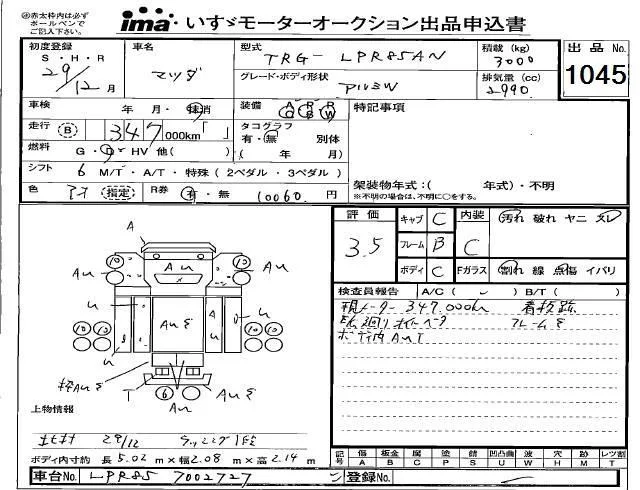 ㊟赤太枠内は必ず
ボールペンで
ご記入下さい。
ima いすゞモーターオークション出品申込書
初度登録 車名 型式 TRG- LPR85AN 積載 (kg) 3000 出品No.
S・H・R 29/12月 マツダ グレード・ボディ形状 アルミW 排気量 (cc) 2990 1045
車検 年・月・抹消 装備 A P R 特記事項
C B W
走行 B 347,000km「 」 タコグラフ
有・無 別体
燃料 G・D・HV 他( ) ( 年 月)
シフト 6 M/T・A/T・特殊 ( 2ペダル・3ペダル )
架装物年式:( 年式)・不明
色 アオ 指定 R券 有・無 10060 円
※不明の場合は、不明に○をする。
評価 キャブ C 内装 汚れ 破れ ヤニ スレ
3.5 フレーム B C
ボディ C Fガラス 割れ 線 点傷 イバリ
検査員報告 A/C( ) B/T( )
現メーター 347,000km 看板跡
下廻り
ボディ内 AUT
A
10 10
AU
T
6
上物情報
29/12
ボディ内寸約 長 5.02 m×幅 2.08 m×高 2.14 m
記号 傷 板金 腐 塗 錆 凹凸曲 波 穴 跡 レツ割
A B C P S U W H M T
車台No. LPR85 7002727 登録No.